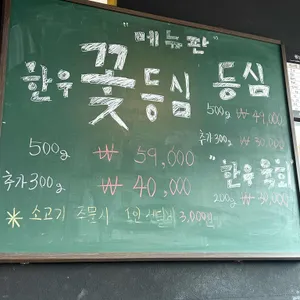 "메뉴판"
한우 꽃등심
500g ₩ 59,000
추가 300g ₩ 40,000
등심
500g ₩ 49,000
추가 300g ₩ 30,000
"한우 육회
200g ₩ 30,000
* 소고기 주문시 1인 3,000원